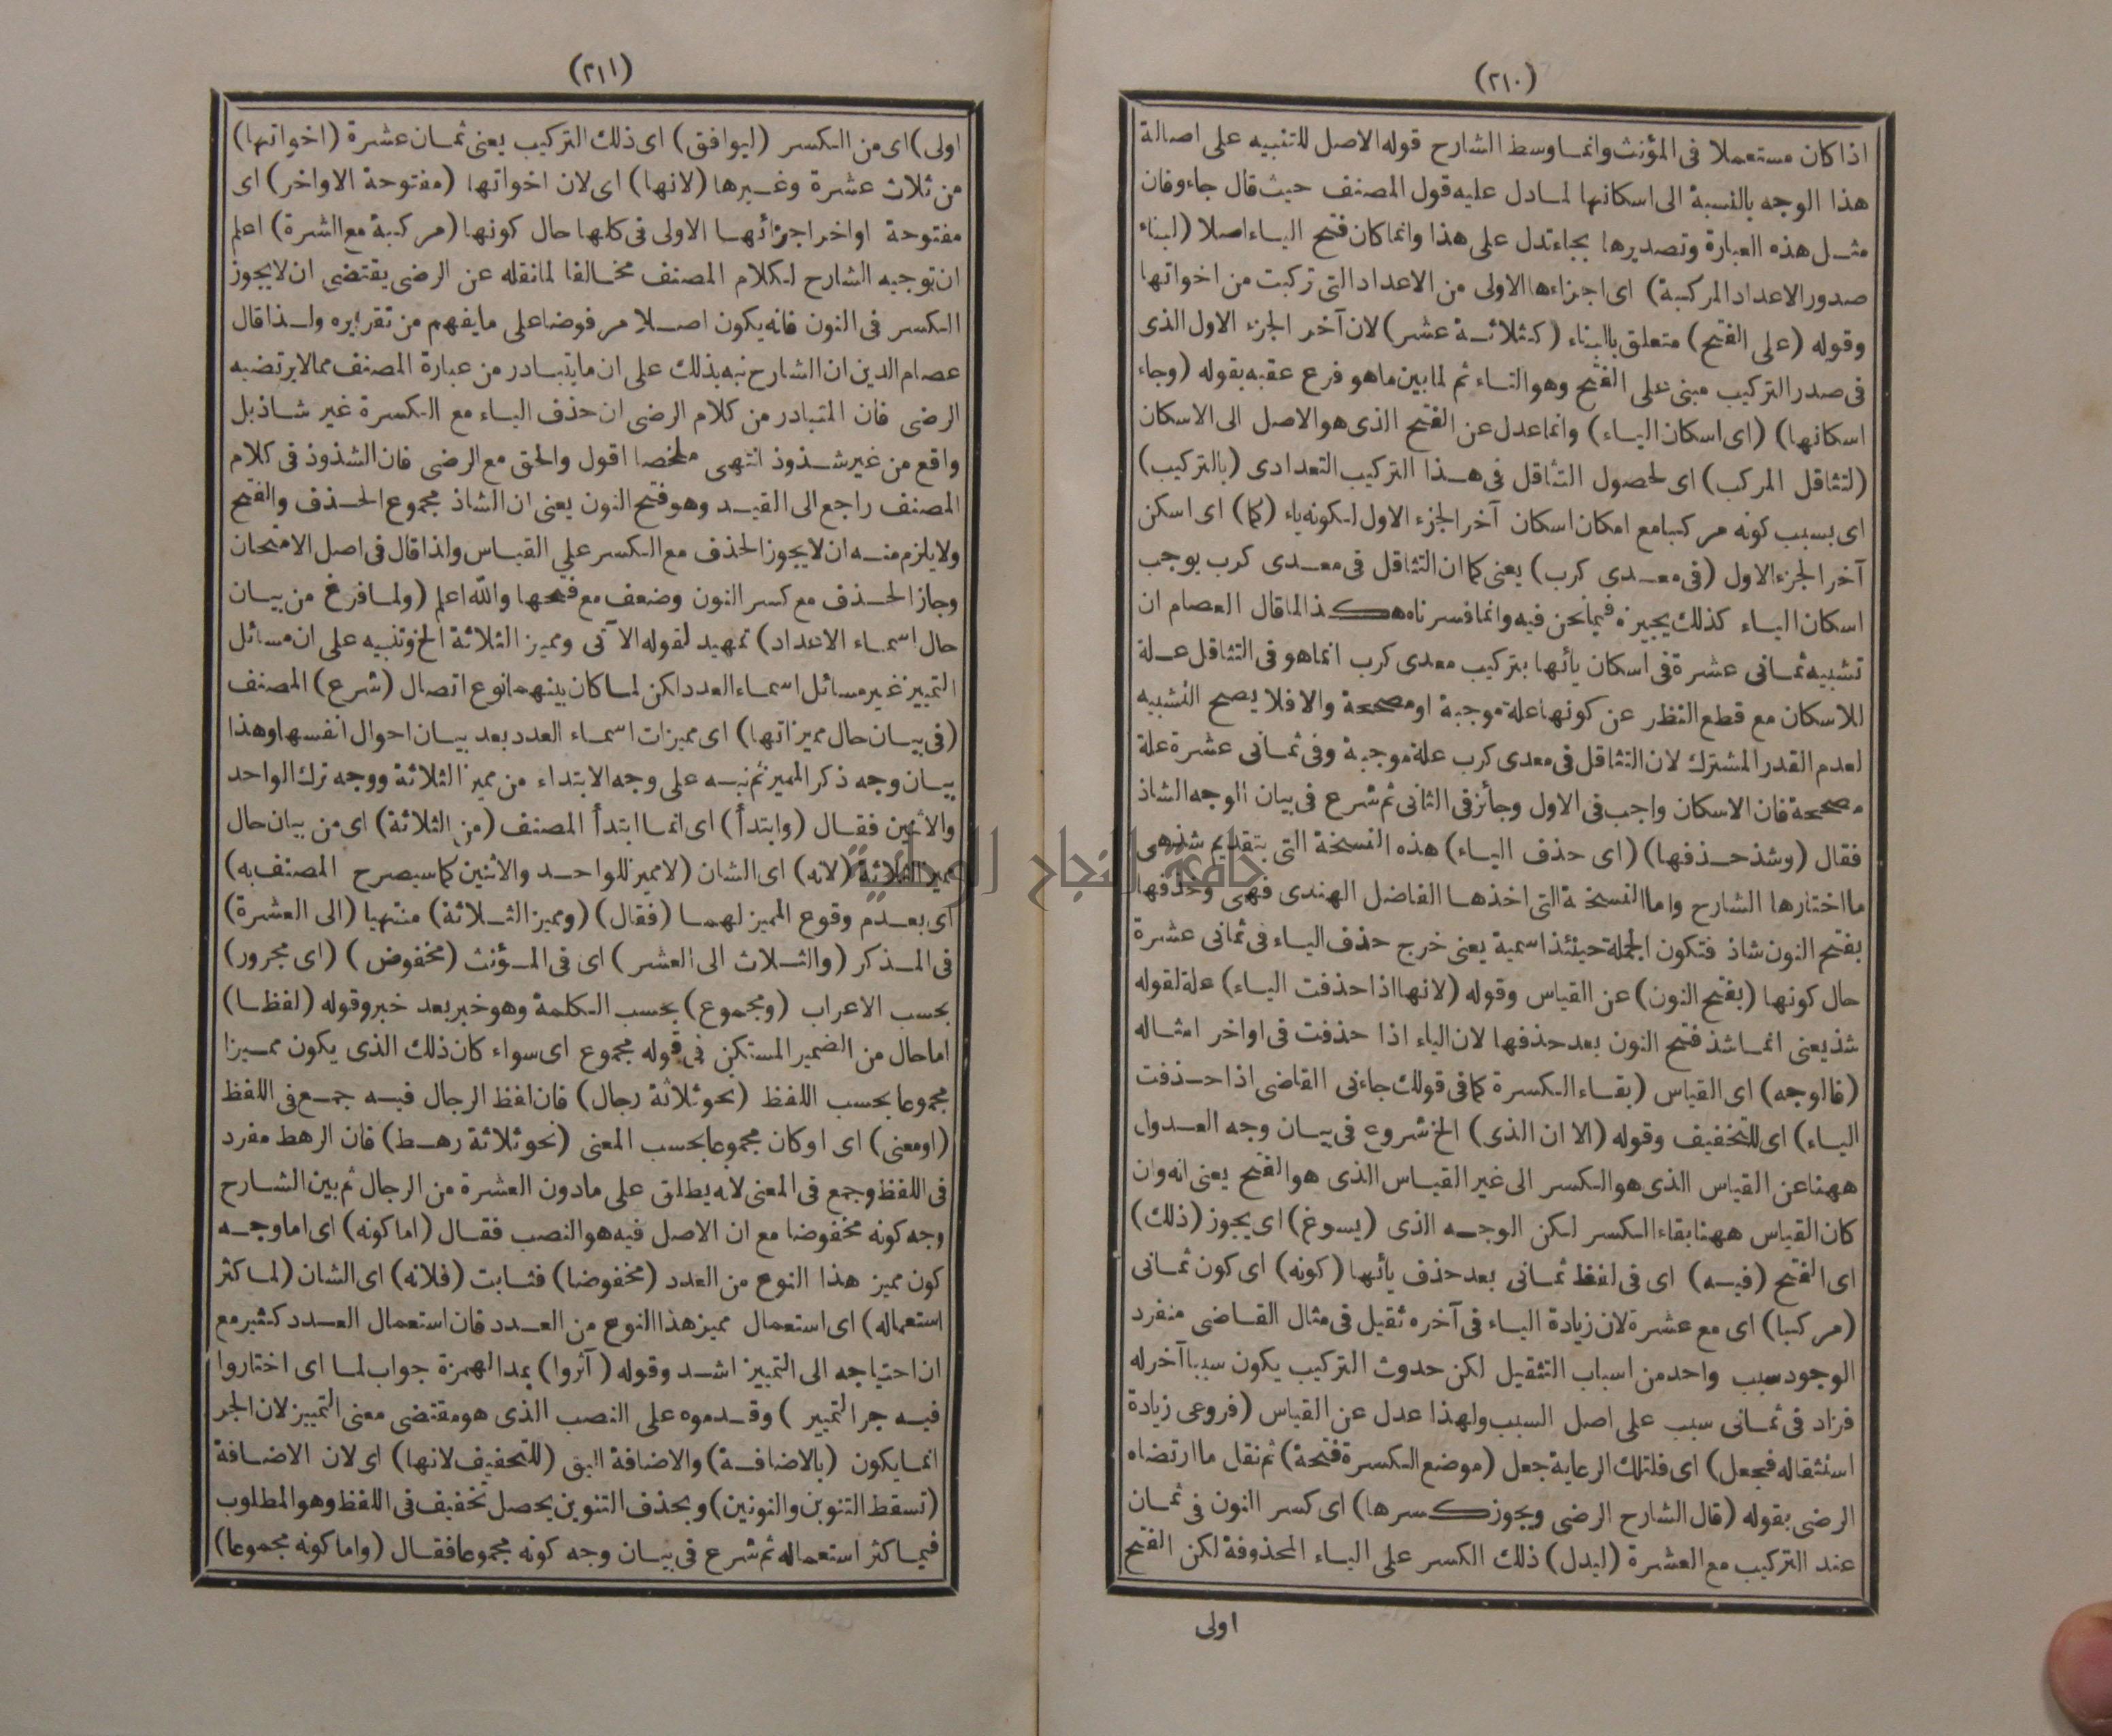 (٢١٠)
اذا كان مستعملا فى المؤنث وانما وسط الشارح قوله الاصل للتنبيه على اصالة
هذا الوجه بالنسبة الى اسكانها لما دل عليه قول المصنف حيث قال جاء وفان
مثل هذه العبارة وتصديرها بجاء تدل على هذا وانما كان فتح الياء اصلا (لبناء
صدور الاعداد المركبة) اى اجزاءها الاولى من الاعداد التى تركبت من اخواتها
وقوله (على الفتح) متعلق بالبناء (كثلاثة عشر) لان آخر الجزء الاول الذى
فى صدر التركيب مبنى على الفتح وهو التاء ثم لما بين ما هو فرع عقبه بقوله (وجاء
اسكانها) (اى اسكان الياء) وانما عدل عن الفتح الذى هو الاصل الى الاسكان
(لتثاقل المركب) اى لحصول التثاقل فى هذا التركيب التعدادى (بالتركيب)
اى بسبب كونه مركبا مع امكان اسكان آخر الجزء الاول لكونه ياء (كما) اى اسكن
آخر الجزء الاول (فى معدى كرب) يعنى كما ان التثاقل فى معدى كرب يوجب
اسكان الياء كذلك يجيزه فيما نحن فيه وانما فسرناه هكذا لما قال العصام ان
تشبيه ثمانى عشرة فى اسكان يائها بتركيب معدى كرب انما هو فى التثاقل علة
للاسكان مع قطع النظر عن كونها علة موجبة او مصححة والا فلا يصح التشبيه
لعدم القدر المشترك لان التثاقل فى معدى كرب علة موجبة وفى ثمانى عشرة علة
مصححة فان الاسكان واجب فى الاول وجائز فى الثانى ثم شرع فى بيان الوجه الشاذ
فقال (وشذ حذفها) (اى حذف الياء) هذه النسخة التى بتقديم شذ هى
ما اختارها الشارح واما النسخة التى اخذها الفاضل الهندى فهى وحذفها
بفتح النون شاذ فتكون الجملة حينئذ اسمية يعنى خرج حذف الياء فى ثمانى عشرة
حال كونها (بفتح النون) عن القياس وقوله (لانها اذا حذفت الياء) علة لقوله
شذ يعنى انما شذ فتح النون بعد حذفها لان الياء اذا حذفت فى اواخر امثاله
(فالوجه) اى القياس (بقاء الكسرة كما فى قولك جاءنى القاضى اذا حذفت
الياء) اى للتخفيف وقوله (الا ان الذى) الخ شروع فى بيان وجه العدول
ههنا عن القياس الذى هو الكسر الى غير القياس الذى هو الفتح يعنى انه وان
كان القياس ههنا بقاء الكسر لكن الوجه الذى (يسوغ) اى يجوز (ذلك)
اى الفتح (فيه) اى فى لفظ ثمانى بعد حذف يائها (كونه) اى كون ثمانى
(مركبا) اى مع عشرة لان زيادة الياء فى آخره ثقيل فى مثال القاضى منفرد
الوجود سبب واحد من اسباب التثقيل لكن حدوث التركيب يكون سببا آخر له
فزاد فى ثمانى سبب على اصل السبب ولهذا عدل عن القياس (فروعى زيادة
استثقاله فجعل) اى فلتلك الرعاية جعل (موضع الكسرة فتحة) ثم نقل ما ارتضاه
الرضى بقوله (قال الشارح الرضى ويجوز كسرها) اى كسر النون فى ثمان
عند التركيب مع العشرة (ليدل) ذلك الكسر على الياء المحذوفة لكن الفتح
اولى
(٢١١)
اولى) اى من الكسر (ليوافق) اى ذلك التركيب يعنى ثمان عشرة (اخواتها)
من ثلاث عشرة وغيرها (لانها) اى لان اخواتها (مفتوحة الاواخر) اى
مفتوحة اواخر اجزائها الاولى فى كلها حال كونها (مركبة مع العشرة) اعلم
ان توجيه الشارح لكلام المصنف مخالفا لما نقله عن الرضى يقتضى ان لا يجوز
الكسر فى النون فانه يكون اصلا مرفوضا على ما يفهم من تقريره ولذا قال
عصام الدين ان الشارح نبه بذلك على ان ما يتبادر من عبارة المصنف مما لا يرتضيه
الرضى فان المتبادر من كلام الرضى ان حذف الياء مع الكسرة غير شاذ بل
واقع من غير شذوذ انتهى ملخصا اقول والحق مع الرضى فان الشذوذ فى كلام
المصنف راجع الى القيد وهو فتح النون يعنى ان الشاذ مجموع الحذف والفتح
ولا يلزم منه ان لا يجوز الحذف مع الكسر على القياس ولذا قال فى اصل الامتحان
وجاز الحذف مع كسر النون وضعف مع فتحها والله اعلم (ولما فرغ من بيان
حال اسماء الاعداد) تمهيد لقوله الآتى ومميز الثلاثة الخ وتنبيه على ان مسائل
التمييز غير مسائل اسماء العدد لكن لما كان بينهما نوع اتصال (شرع) المصنف
(فى بيان حال مميزاتها) اى مميزات اسماء العدد بعد بيان احوال انفسها وهذا
بيان وجه ذكر المميز ثم نبه على وجه الابتداء من مميز الثلاثة ووجه ترك الواحد
والاثنين فقال (وابتدأ) اى انما ابتدأ المصنف (من الثلاثة) اى من بيان حال
مميز الثلاثة (لانه) اى الشان (لا مميز للواحد والاثنين كما سيصرح المصنف به)
اى بعدم وقوع المميز لهما (فقال) (ومميز الثلاثة) منتهيا (الى العشرة)
فى المذكر (والثلاث الى العشر) اى فى المؤنث (مخفوض) (اى مجرور)
بحسب الاعراب (ومجموع) بحسب الكلمة وهو خبر بعد خبر وقوله (لفظا)
اما حال من الضمير المستكن فى قوله مجموع اى سواء كان ذلك الذى يكون مميزا
مجموعا بحسب اللفظ (نحو ثلاثة رجال) فان لفظ الرجال فيه جمع فى اللفظ
(او معنى) اى او كان مجموعا بحسب المعنى (نحو ثلاثة رهط) فان الرهط مفرد
فى اللفظ وجمع فى المعنى لانه يطلق على ما دون العشرة من الرجال ثم بين الشارح
وجه كونه مخفوضا مع ان الاصل فيه هو النصب فقال (اما كونه) اى اما وجه
كون مميز هذا النوع من العدد (مخفوضا) فثابت (فلانه) اى الشان (لما كثر
استعماله) اى استعمال مميز هذا النوع من العدد فان استعمال العدد كثير مع
ان احتياجه الى التمييز اشد وقوله (آثروا) بمد الهمزة جواب لما اى اختاروا
فيه جر التمييز ) وقدموه على النصب الذى هو مقتضى معنى التمييز لان الجر
انما يكون (بالاضافة) والاضافة اليق (للتخفيف لانها) اى لان الاضافة
(تسقط التنوين والنونين) وبحذف التنوين يحصل تخفيف فى اللفظ وهو المطلوب
فيما كثر استعماله ثم شرع فى بيان وجه كونه مجموعا فقال (واما كونه مجموعا)
جامعة النجاح الوطنية